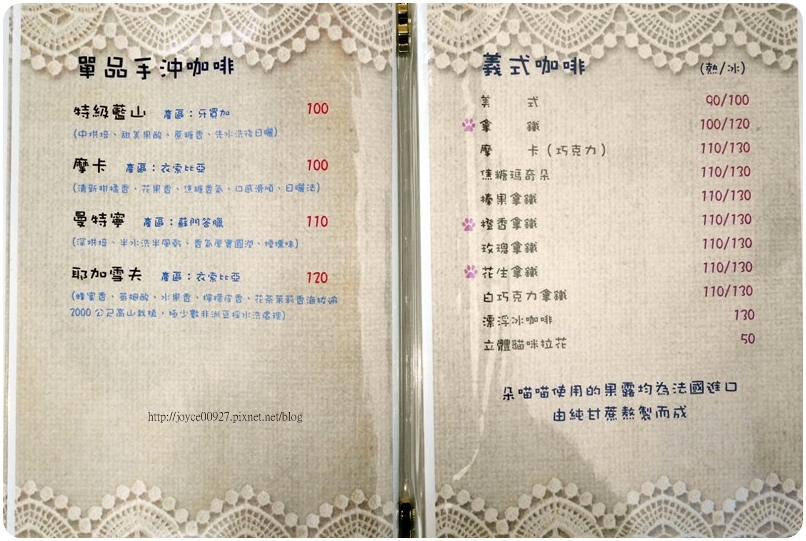 單品手沖咖啡
特級藍山 產區：牙買加 100
(中烘培、甜美果酸、蔗糖香、先水洗後日曬)
摩卡 產區：衣索比亞 100
(清新柑橘香、花果香、焦糖香氣、口感滑順、日曬法)
曼特寧 產區：蘇門答臘 110
(深烘培、半水洗半風乾、香氣厚實圓潤、煙燻味)
耶加雪夫 產區：衣索比亞 120
(蜂蜜香、葡萄酸、水果香、檸檬皮香、花茶茉莉香海拔逾
2000 公尺高山栽植，極少數非洲豆採水洗處理)
http://joyce00927.pixnet.net/blog
義式咖啡 (熱/冰)
美 式 90/100
拿 鐵 100/120
摩 卡（巧克力） 110/130
焦糖瑪奇朵 110/130
榛果拿鐵 110/130
橙香拿鐵 110/130
玫瑰拿鐵 110/130
花生拿鐵 110/130
白巧克力拿鐵 110/130
漂浮冰咖啡 130
立體貓咪拉花 50
朵喵喵使用的果露均為法國進口
由純甘蔗熬製而成